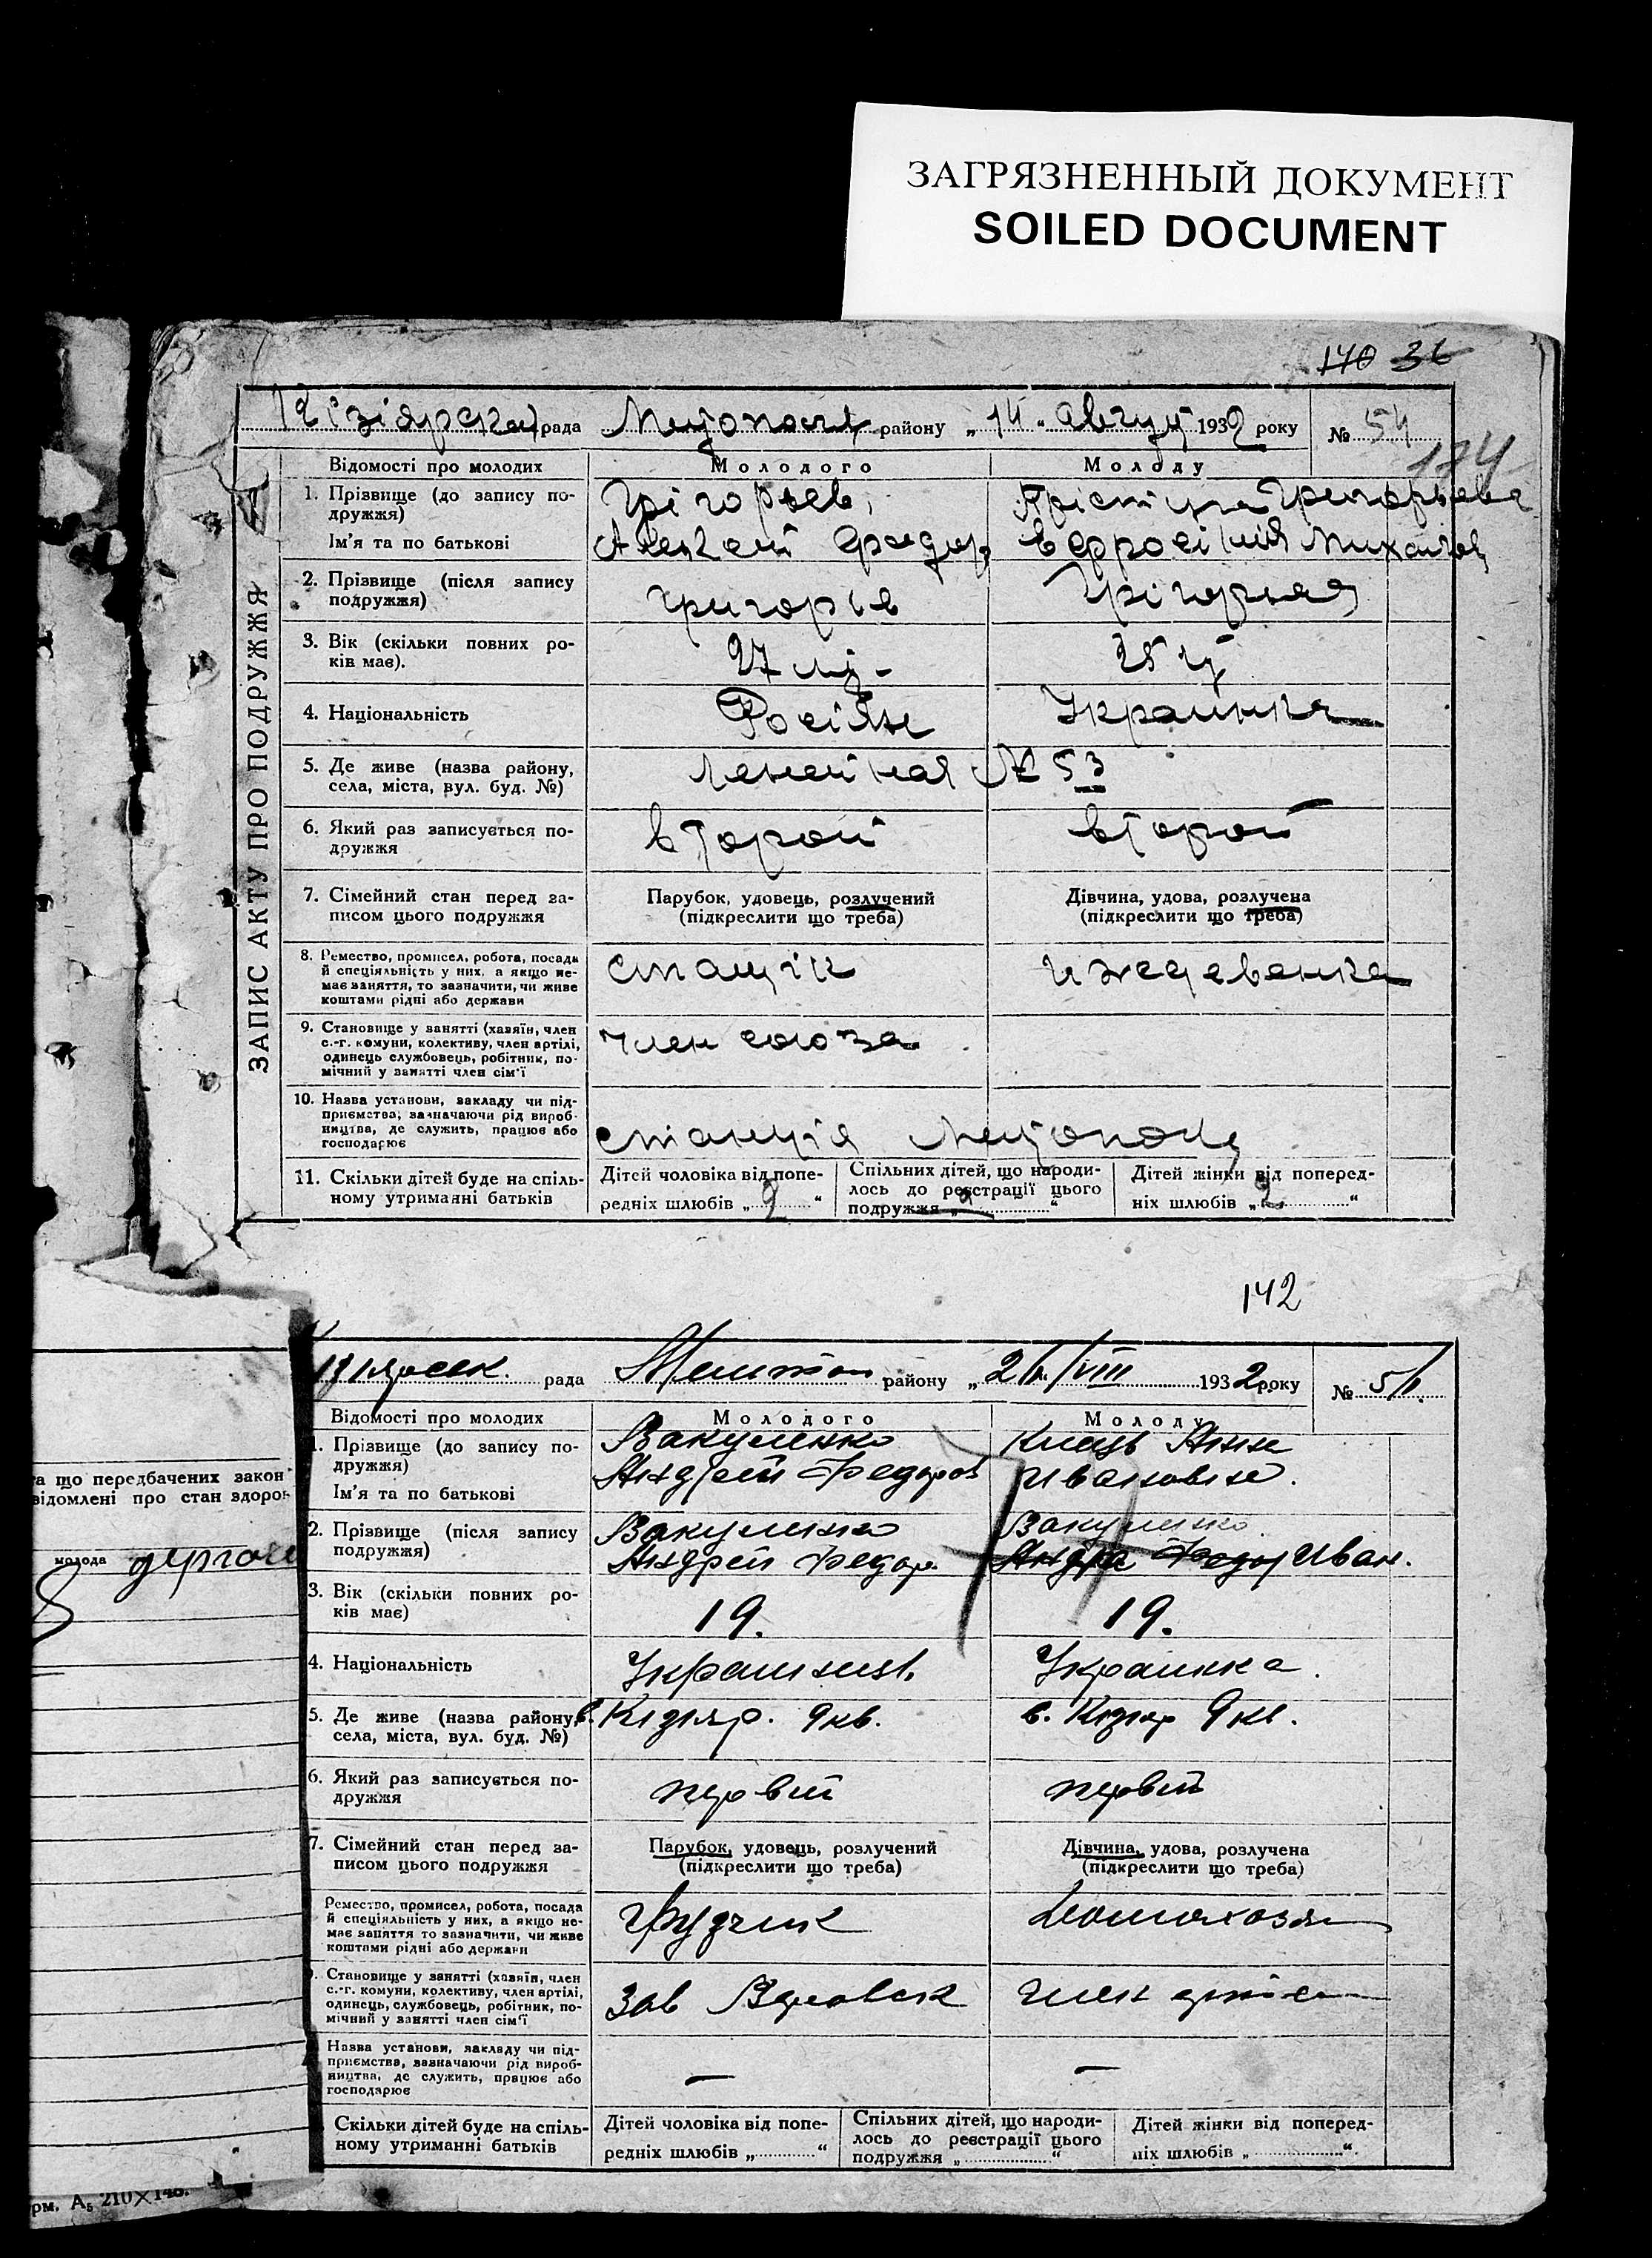 ЗАГРЯЗНЕННЫЙ ДОКУМЕНТ
SOILED DOCUMENT
170 36
Кізіярская рада Мелітопольск району „14“ август 1932 року № 54
174
ЗАПИС АКТУ ПРО ПОДРУЖЖЯ
Відомості про молодих Молодого Молоду
1. Прізвище (до запису по- Грігорьев,
дружжя)
Ім'я та по батькові Алексей Федор
2. Прізвище (після запису
подружжя) Григорьев
3. Вік (скільки повних ро-
ків має). 27 25
4. Національність Росіян Украинка
5. Де живе (назва району,
села, міста, вул. буд. №) № 53
6. Який раз записується по- второй второй
дружжя
7. Сімейний стан перед за- Парубок, удовець, розлучений Дівчина, удова, розлучена
писом цього подружжя (підкреслити що треба) (підкреслити що треба)
8. Ремество, промисел, робота, посада
й спеціяльність у них, а якщо не- иждевенка
має заняття, то зазначити, чи живе
коштами рідні або держави
9. Становище у занятті (хазяїн, член
с.-г. комуни, колективу, член артілі, член союза
одинець службовець, робітник, по-
мічний у занятті член сім'ї
10. Назва установи, закладу чи під-
приємства, зазначаючи рід вироб-
ництва, де служить, працює або станція
господарює
11. Скільки дітей буде на спіль- Дітей чоловіка від попе- Спільних дітей, що народи- Дітей жінки від поперед-
ному утриманні батьків редніх шлюбів „ 2 “ лось до реєстрації цього ніх шлюбів „ 2 “
подружжя „ “
142
рада району „ /VIII 1932 року №
Відомості про молодих Молодого Молоду
1. Прізвище (до запису по- Вакуленко Анна
дружжя) Андрей Федоров Ивановна.
Ім'я та по батькові
2. Прізвище (після запису Вакуленко Вакуленко
подружжя) Андрей Федор. Иван.
3. Вік (скільки повних ро-
ків має) 19. 19.
4. Національність Украинец. Украинка.
5. Де живе (назва району, с. Кізіяр. 9 кв. с. Кізіяр 9 кв.
села, міста, вул. буд. №)
6. Який раз записується по- первий первий
дружжя
7. Сімейний стан перед за- Парубок, удовець, розлучений Дівчина, удова, розлучена
писом цього подружжя (підкреслити що треба) (підкреслити що треба)
Ремество, промисел, робота, посада
й спеціяльність у них, а якщо не- Грузчик Домохозя
має заняття то зазначити, чи живе
коштами рідні або держави
Становище у занятті (хазяїн, член
с.-г. комуни, колективу, член артілі, член
одинець, службовець, робітник, по-
мічний у занятті член сім'ї
Назва установи, закладу чи під-
приємства, зазначаючи рід вироб- — —
ництва, де служить, працює або
господарює
Скільки дітей буде на спіль- Дітей чоловіка від попе- Спільних дітей, що народи- Дітей жінки від поперед-
ному утриманні батьків редніх шлюбів „ “ лось до реєстрації цього ніх шлюбів „ “
подружжя „ “
та що передбачених закон
відомлені про стан здоров
молода
рм. А5 210×148.